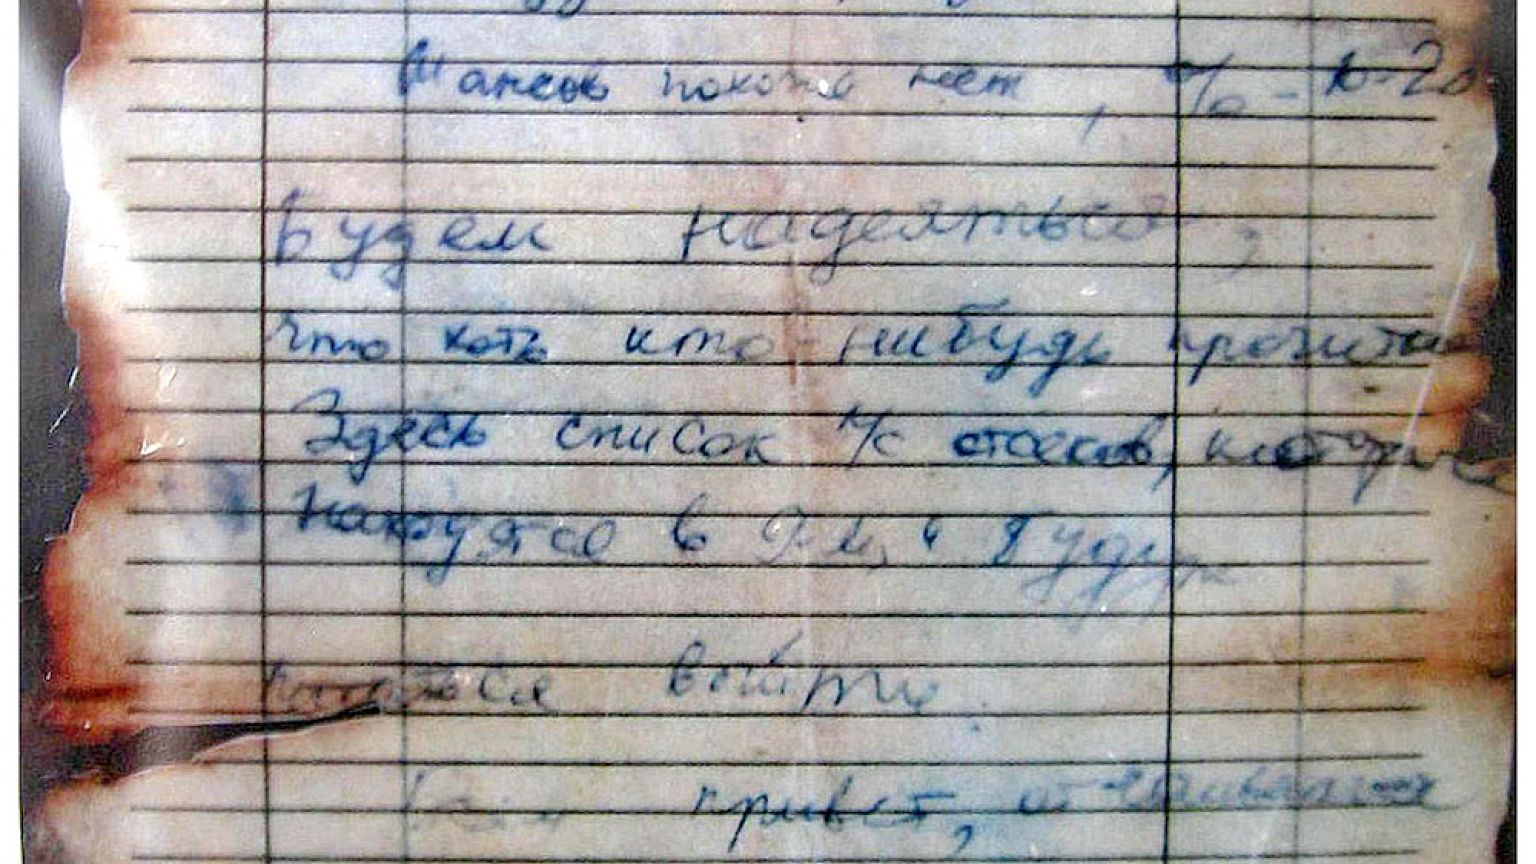 Шансов похоже нет, % - 10-20
Будем надеяться,
что хоть кто-нибудь прочитает
Здесь список л/с отсеков, которые
находятся в 9-м и будут
пытаться выйти.
привет, отчаиваться